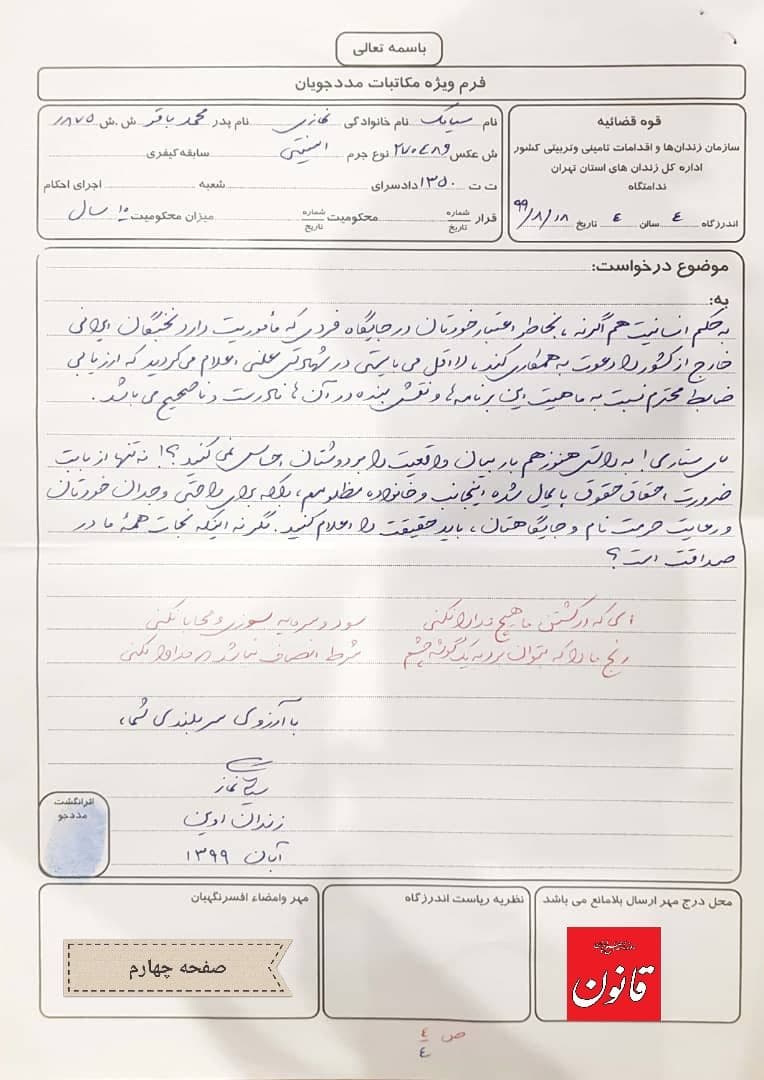 باسمه تعالی
فرم ویژه مکاتبات مددجویان
قوه قضائیه
سازمان زندان‌ها و اقدامات تامینی وتربیتی کشور
اداره کل زندان های استان تهران
ندامتگاه
اندرزگاه ٤ سالن ٤ تاریخ ۹۹/۸/۱۸
نام سیامک نام خانوادگی نمازی نام پدر محمد باقر ش.ش ۱۸۷۵
ش عکس ۲۷۰۴۸۹ نوع جرم امنیتی سابقه کیفری
ت ت ۱۳۵۰ دادسرای شعبه اجرای احکام
قرار شماره تاریخ محکومیت شماره تاریخ میزان محکومیت ۱۰ سال
موضوع درخواست:
به:
به حکم انسانیت هم اگر نه، بخاطر اعتبار خودتان در جایگاه فردی که مأموریت دارد نخبگان ایرانی
خارج از کشور را دعوت به همکاری کند، لااقل می بایستی در شهادتی علنی اعلام می کردید که ارزیابی
ضابط محترم نسبت به ماهیت این برنامه ها و نقش بنده در آن ها نادرست و ناصحیح می باشد.
آقای ستاری! به راستی هنوز هم بار بیان واقعیت را بر دوشتان احساس نمی کنید؟! نه تنها از بابت
ضرورت احقاق حقوق پایمال شده اینجانب و خانواده مظلومم، بلکه برای راحتی وجدان خودتان
و رعایت حرمت نام و جایگاهتان، باید حقیقت را اعلام کنید. مگر نه اینکه نجات همهٔ ما در
صداقت است؟
ای که در کشتن ما هیچ مدارا نکنی سود و سرمایه بسوزی و محابا نکنی
رنج ما را که توان برد به یک گوشه چشم شرط انصاف نباشد که مداوا نکنی
با آرزوی سربلندی شما،
سیامک نمازی
زندان اوین
آبان ۱۳۹۹
اثرانگشت
مددجو
محل درج مهر ارسال بلامانع می باشد
نظریه ریاست اندرزگاه
مهر وامضاء افسرنگهبان
صفحه چهارم
قانون
ص ٤/٤